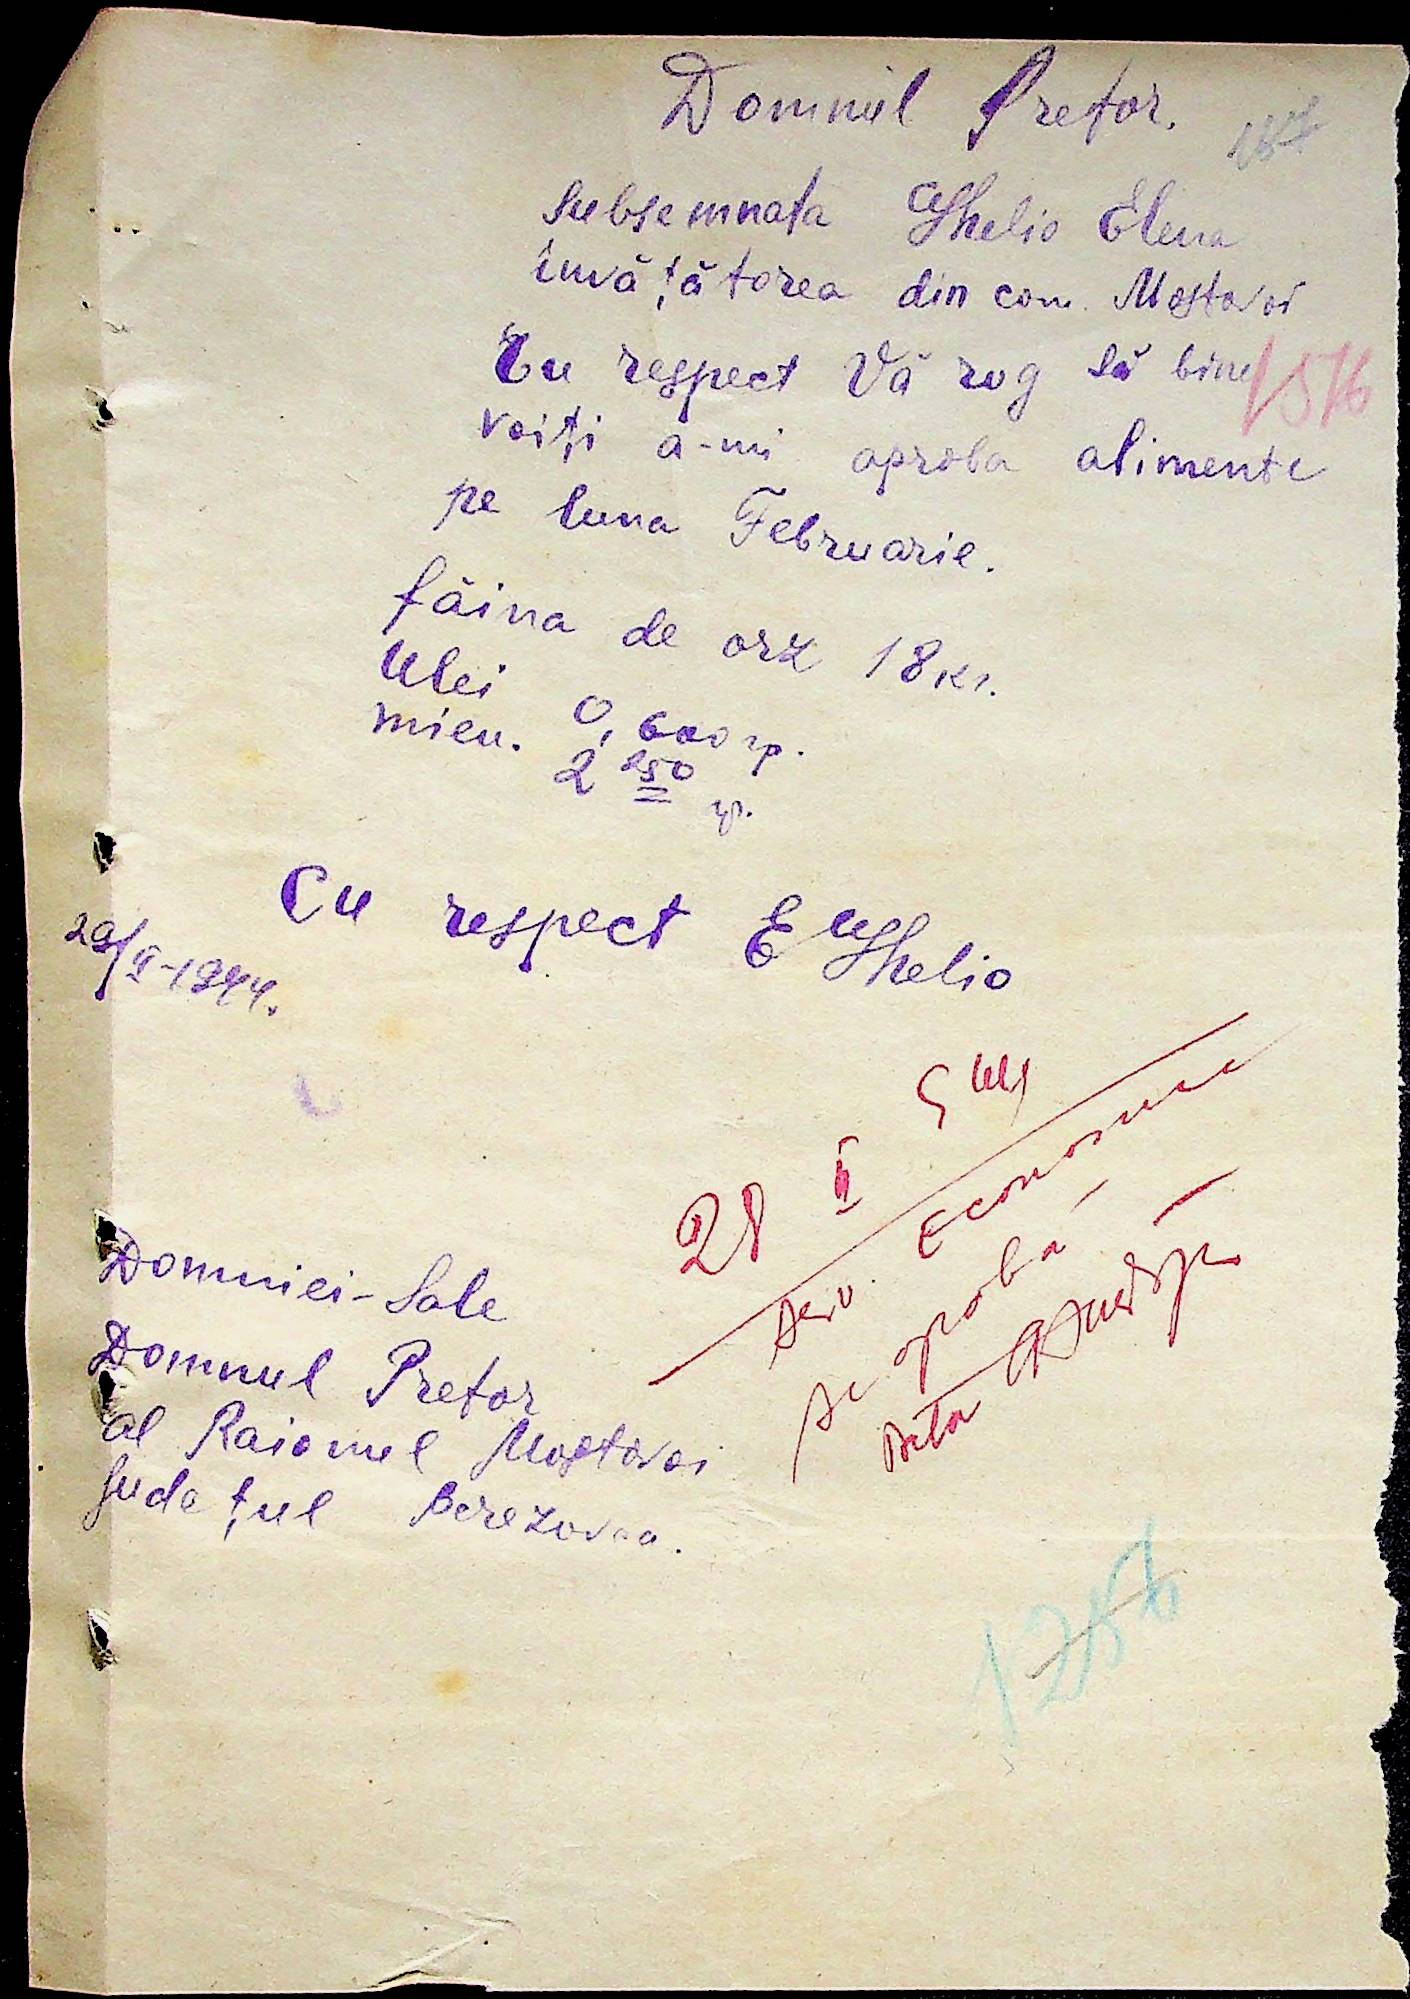 Domnul Pretor.
187
Subsemnata Ghelio Elena
învățătorea din com. Mostovoi
Cu respect Vă rog să bine
voiți a-mi aproba alimente
pe luna Februarie.
făina de orz 18 кг.
Ulei 0,600 гр.
mieu. 2 250 гр.
Cu respect E Ghelio
29/II-1944.
28 II
Serv. Economic
se aproba
Domniei-Sale
Domnul Pretor
al Raionul Mostovoi
Județul Berezovca.